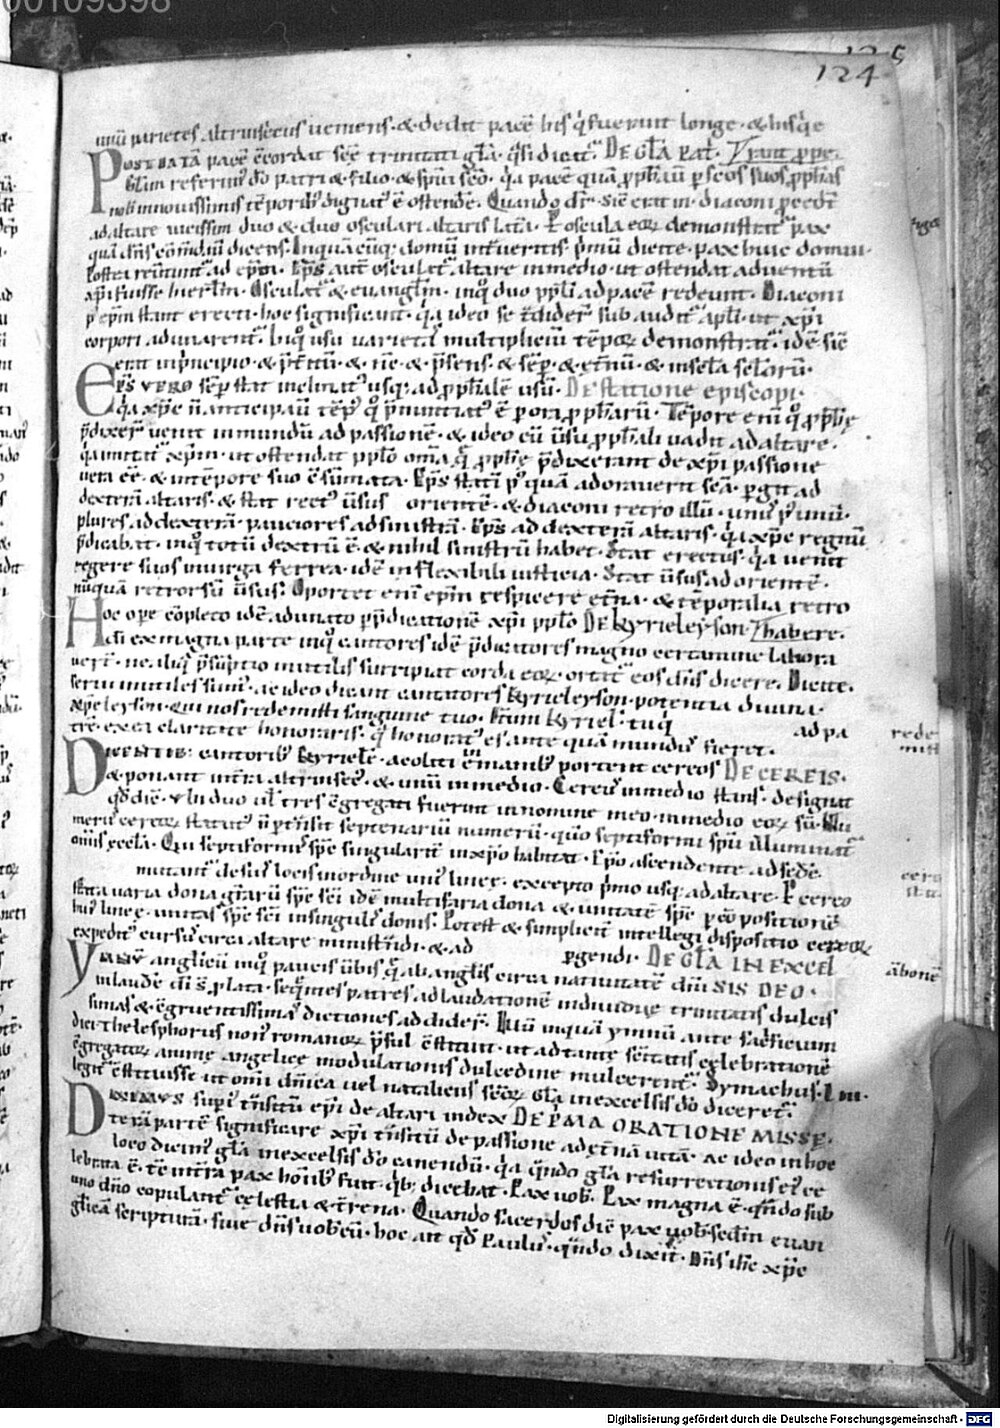 00109398
125
124
unū parietes altrinsecus veniens · & dedit pacē his q̇ fuerunt longe · & his q̇
POST DATĀ pacē c̄cordat scē trinitati gl̄a · DE GL̄A PAT̄ ·
Gl̄am referim᷒ dō patri & filio & spūi scō · q̇a pacē quā ꝓph̄auit ꝑ scōs suos ꝓph̄as
nob̄ in novissimis tēporib᷒ dignat᷒ ē ostendē · Quando dr̄ · Sic̄ erat in · diaconi ꝓcedt̄
ad altare vicissim duo & duo osculari altaris lat̄a · P̲ oscula eoꝝ demonstrat᷑ pax
quā dn̄s com̄dauit dicens · In quācūq; domū int̄ueritis · p̄mū dicite · pax huic domui ·
Postea revt̄unt᷑ ad ep̄m · Ep̄s aut̄ osculat᷑ altare in medio · ut ostendat adventū
xp̄i fuisse hierl̄m · Osculat᷑ & evangl̄m · in q̇ duo pp̄li ad pacē redeunt · Diaconi
p᷒ ep̄m stant erecti · hoc significant · q̇a ideo se t̄dider̄ sub audit᷑ apl̄i · ut xp̄i
corpori adunarent᷑ · In q̇ usu varietas multipliciū tēpoꝝ demonstrat᷑ · idē sic̄
erat in principio · & p̄t̄itū · & nc̄ · & p̄sens · & sēp · & et̄nū · & in sc̄la sc̄loꝝ ·
EP̄S VERO sēp stat inclinat᷒ usq; ad ꝓph̄alē v̄sū · DE STATIONE EPISCOPI ·
Q̇a xp̄c n̄ anticipauit tēp᷒ q̇ p̄nuntiat᷒ ē ꝑ ora ꝓph̄arū · Tēpore eni q̇ ꝓph̄ę
p̄dixer̄ venit in mundū ad passionē · & ideo cū v̄su ꝓph̄ali vadit ad altare ·
q̇a imitat᷑ xp̄m · ut ostendat pp̄lo om̄a q̇ ꝓph̄ę p̄dixerant de xp̄i passione
vera ēē · & in tēpore suo c̄sūmata · Ep̄s stati p᷒ quā adoraverit scā · ꝑgit ad
dexterā altaris · & stat rect᷒ v̄sus orientē · & diaconi retro illū · un᷒ p᷒ unū ·
plures ad dexterā · pauciores ad sinistrā · Ep̄s ad dexterā altaris · q̇a xp̄c regnū
p̄dicabat · in q̇ totū dextrū ē · & nihil sinistrū habet · Stat erectus · q̇a venit
regere suos in virga ferrea · idē inflexibili iusticia · Stat v̄sus ad orientē ·
nūquā retrorsū v̄sus · Oportet eni ep̄m respicere et̄na · & tēporalia retro
HOc oꝑe cōpleto idē adunato ꝑ p̄dicationē xp̄i pp̄lo DE KYRIELEYSON · habere ·
di ex magna parte in q̇ cantores idē p̄dicatores magno certamine labora
ver̄t · ne aliq̇ p̄sūptio inutilis surripiat corda eoꝝ · ortat᷑ eos dn̄s dicere · Dicite ·
servi inutiles sum᷒ · ac ideo dicant cantatores kyrieleyson · potentia divina ·
Xp̄eleyson · qui nos redemisti sanguine tuo · It̄um kyriel̄ · tu q̇ ad pa
tr̄e · ex ea claritate honoraris · q̇ honorat᷒ es ante quā mundus fieret ·
DICENTIB᷒ cantorib᷒ kyriel̄e · acoliti c̄ manib᷒ portent cereos DE CEREIS ·
& ponant int̄ra altrinsec᷒ · & unū in medio · Cere᷒ in medio stans · designat
qd̄ dic̄ · Ubi duo ul̄ tres c̄gregati fuerint in nomine meo · in medio eoꝝ sū · Nu
mer᷒ cereoꝝ statut᷒ n̄ p̄t̄sit septenariū numerū · quō septiformi spū illuminat᷑
om̄is ęccl̄a · Qui septiformis sp̄c singularit̄ in xp̄o habitat · Ep̄o ascendente ad sedē ·
mutant᷑ de suis locis in ordine uni᷒ lineę · excepto p̄mo usq; ad altare · P̲ cereo
stituta varia dona gr̄arū sp̄c sc̄i idē multifaria dona & unitatē sp̄c ꝑ cō positionē
hui᷒ lineę · unitas sp̄c sc̄i in singulis donis · Potest & simplicit̄ intellegi dispositio cereoꝝ
expedit᷒ cursus circa altare ministr̄di · & ad ꝑgendi · DE GL̄A IN EXCEL
YMNV̄ anglicū in q̇ paucis v̄bis q̇ ab anglis circa nativitatē dn̄i SIS DEO ·
in laudē di s̄ ꝓlata · seq̄ntes patres ad laudationē individuę trinitatis dulcis
simas & c̄gruentissimas dictiones addider̄ · Illū inquā ymnū ante sac̄ficium
dici · thelesphorus non᷒ romanoꝝ p̄sul c̄stituit · ut ad tantę scītatis cęlebrationē
c̄gregatoꝝ animę angelicę modulationis dulcedine mulcerent᷑ · Symachus ·
legit᷑ c̄stituisse ut omī dn̄ica vel nataliciis scōꝝ gl̄a in excelsis dō diceret᷑ ·
DIXIMUS supi᷒ t̄nsitū ep̄i de altari in dex DE P̄MA ORATIONE MISSĘ ·
terā partē significare xp̄i t̄nsitū de passione ad et̄nā vitā · ac ideo in hoc
loco dicim᷒ gl̄a in excelsis dō canendū · q̇a q̄ndo gl̄a resurrectionis ei᷒ ce
lebrata ē · tc̄ in t̄ra pax hōib᷒ fuit · qb᷒ dicebat · Pax vob̄ · Pax magna ē · q̄ndo sub
uno dn̄o copulant᷑ cęlestia & t̄rena · Quando sacerdos dic̄ pax vob̄ · sedm̄ evan
glicā scripturā · sive dn̄s vobcū · hoc aīt qd̄ Paulus · q̄ndo dixit · Dn̄s ih̄c xp̄c
rede
misti
cereo
stit
abone
Digitalisierung gefördert durch die Deutsche Forschungsgemeinschaft - DFG